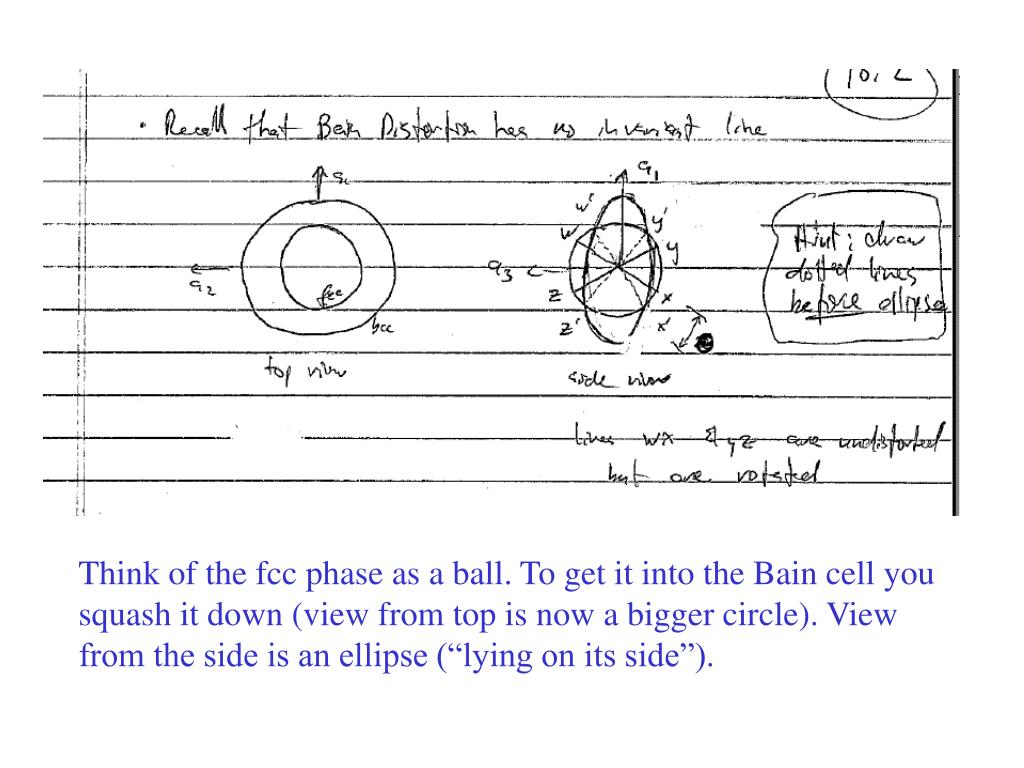 p6.2
• Recall that Bain Distortion has no invariant line
a1
a1
w'
y'
w
y
Hint: draw
dotted lines
before ellipse
a2
fcc
a3
z
x
z'
x'
bcc
top view
side view
lines wx & yz are undistorted
but are rotated
Think of the fcc phase as a ball. To get it into the Bain cell you
squash it down (view from top is now a bigger circle). View
from the side is an ellipse (“lying on its side”).